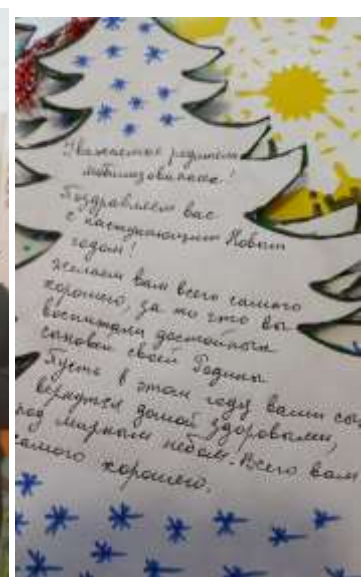 Уважаемые родители
мобилизованных!
Поздравляем вас
с наступающим Новым
годом!
Желаем вам всего самого
хорошего, за то что вы
воспитали достойных
сыновей своей Родины
Пусть в этом году ваши сы
вернутся домой здоровыми,
под мирным небом. Всего вам
самого хорошего.